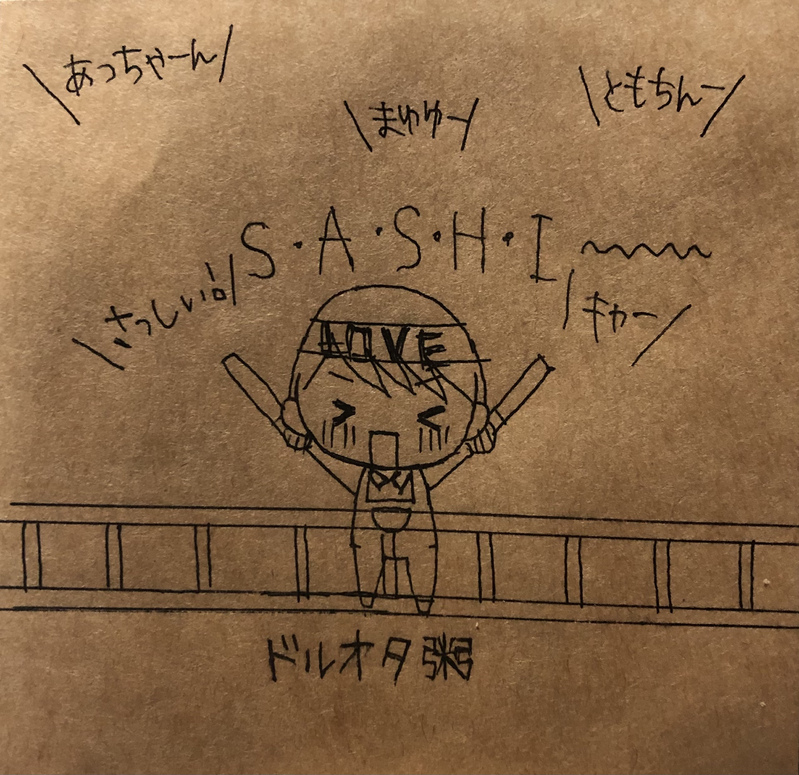 あっちゃーん
ともちんー
まゆゆー
S・A・S・H・I〜〜〜
さっしぃ!!
キャー
LOVE
ドルオタ粥